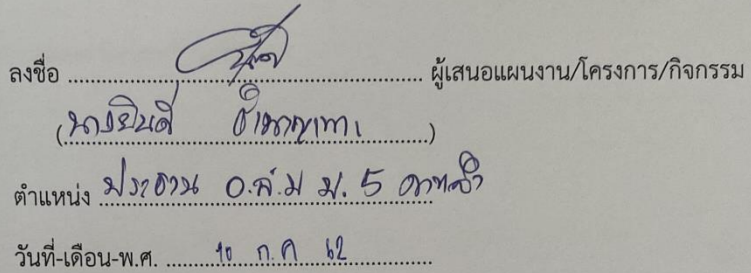 ลงชื่อ ........ ผู้เสนอแผนงาน/โครงการ/กิจกรรม
(นางยินดี ชำนาญเทา)
ตำแหน่ง ประธาน อ.ส.ม ม. 5
วันที่-เดือน-พ.ศ. 10 ก.ค 62